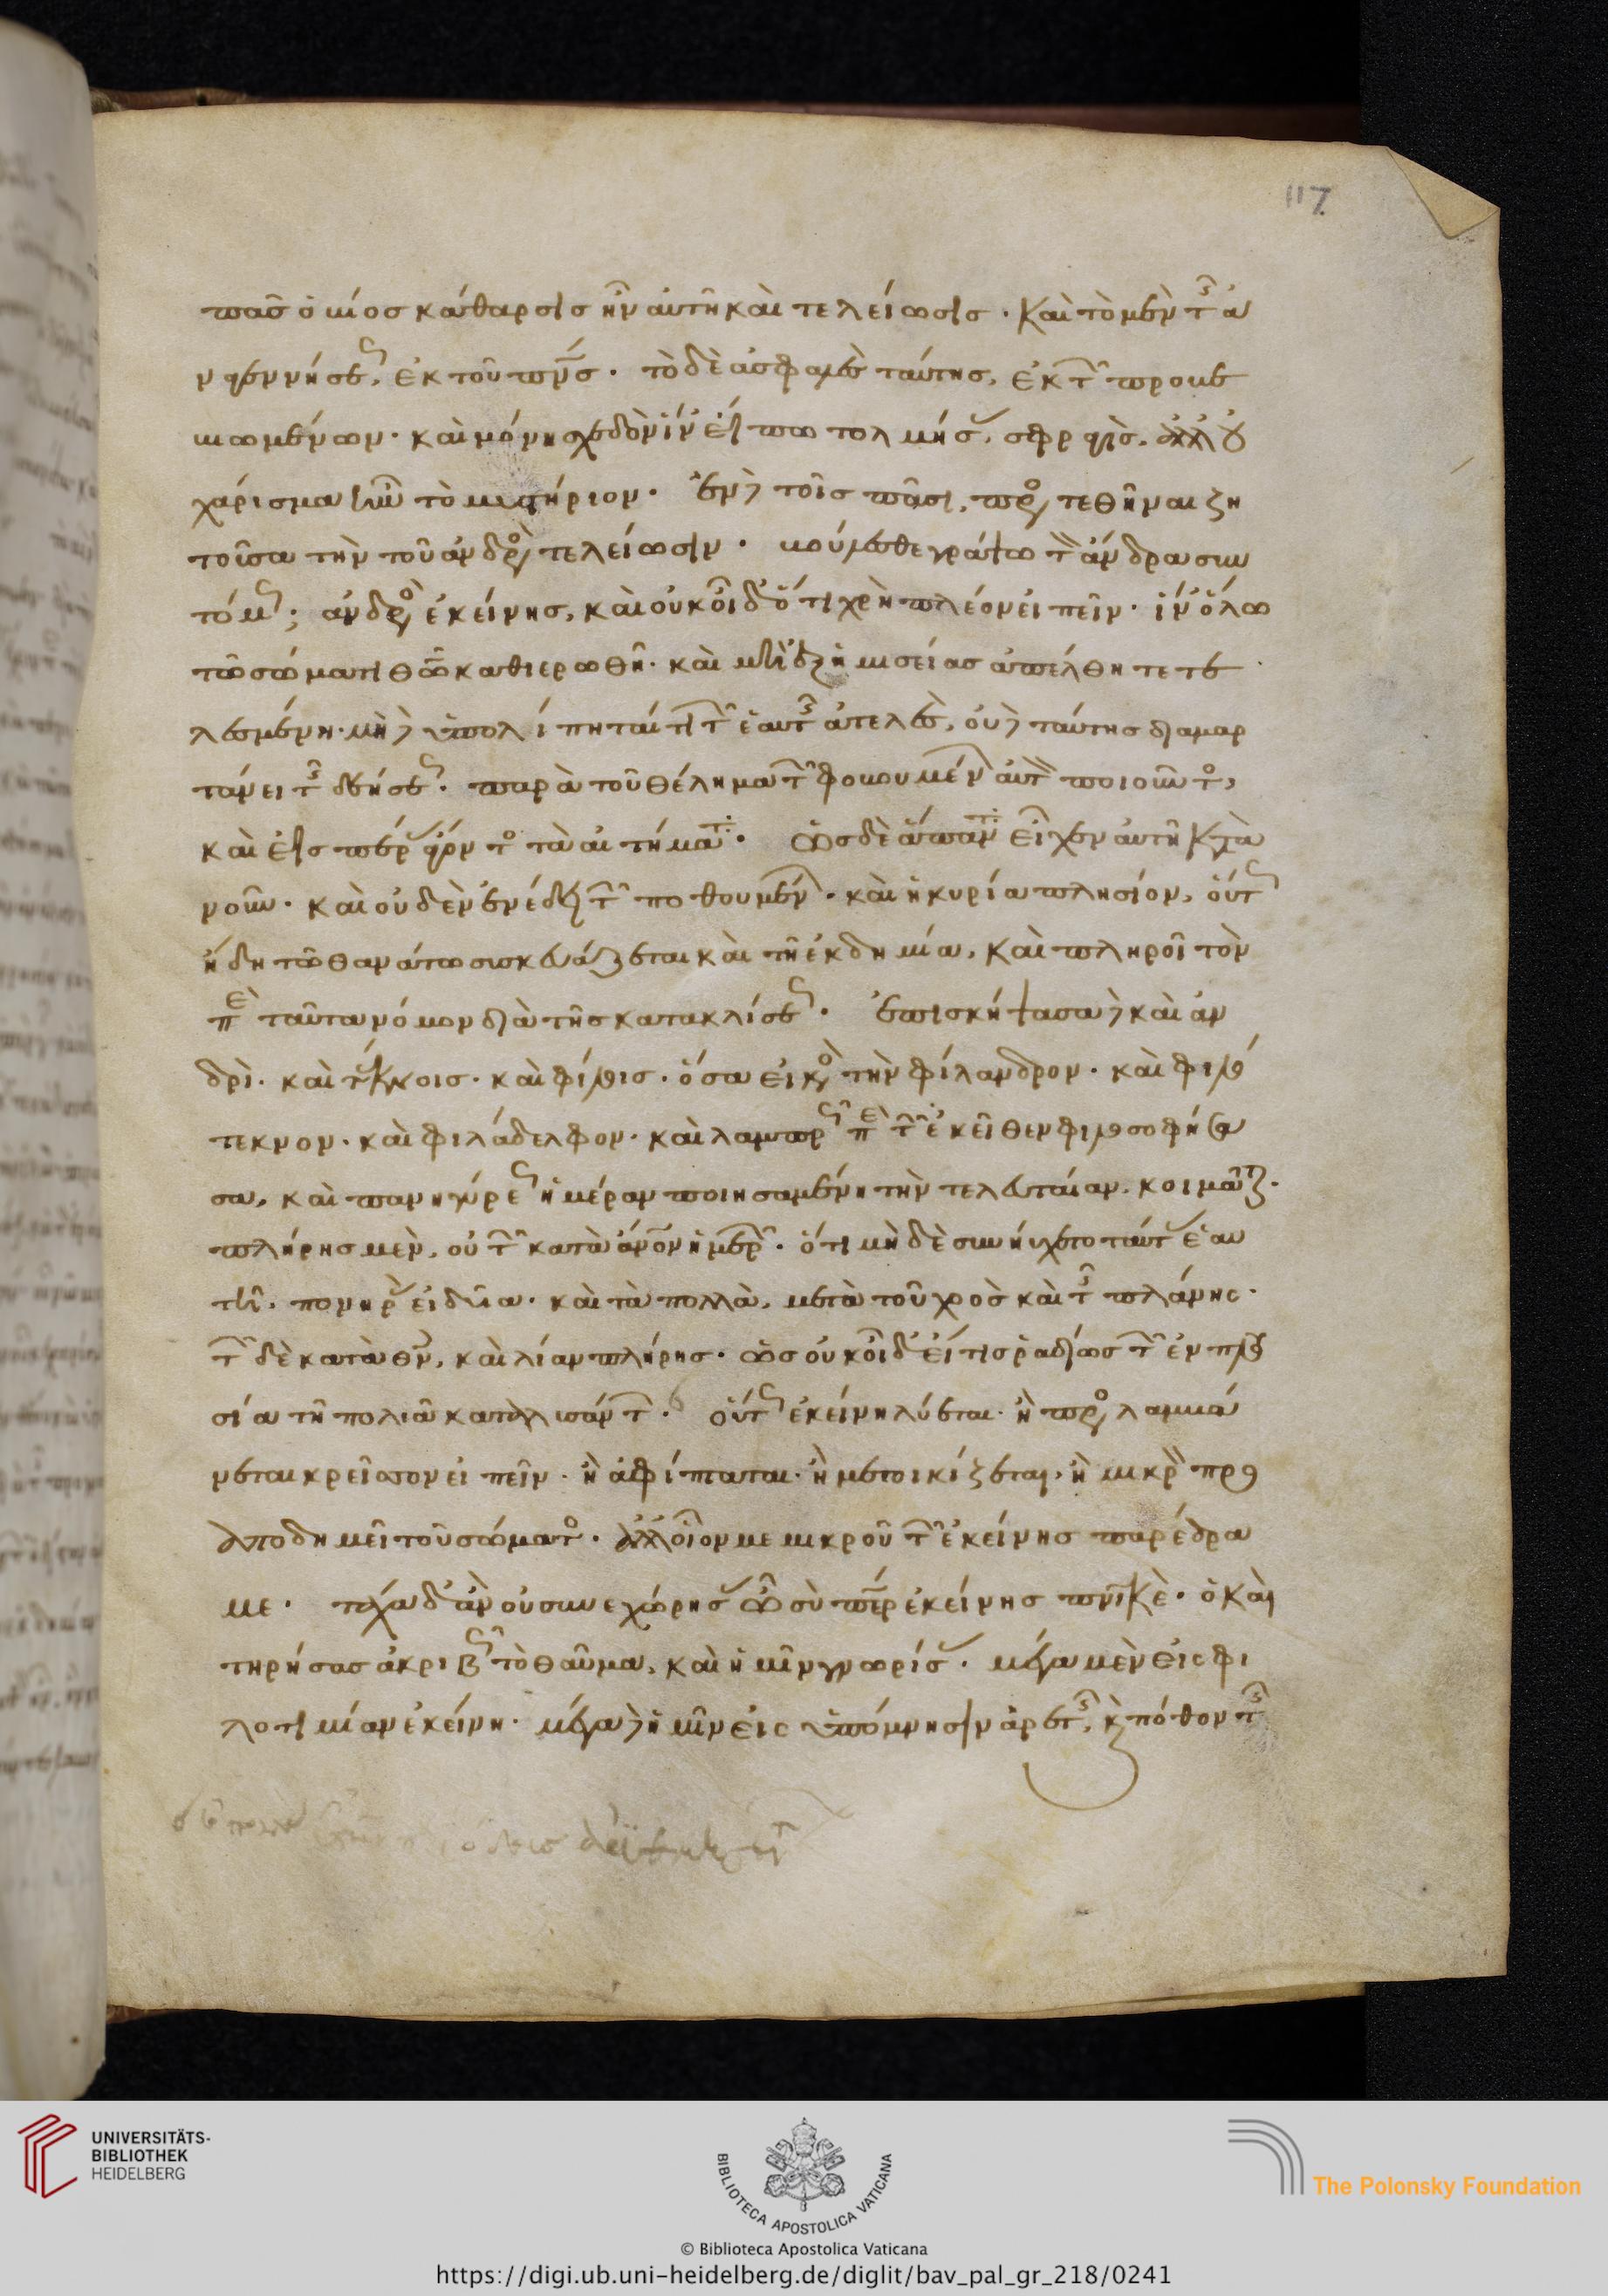 πᾶσ ὁ βίοσ κάθαρσισ ἦν αὐτῆ καὶ τελείωσισ. καὶ τὸ μὲν τῆς ἀ
ναγεννήσεως, ἐκ τοῦ πνσ. τὸ δὲ ἀσφαλὲς ταύτησ, ἐκ τῶν προβε
βιωμένων. καὶ μόνη σχεδὸν ἵν' εἴπω τολμήσας, σφραγίσ, ἀλλ' οὐ
χάρισμα ἦν τὸ μυστήριον. ἓν δὲ τοῖσ πᾶσι, προστεθῆναι ζη
τοῦσα τὴν τοῦ ἀνδρὸς τελείωσιν. βούλεσθε γράψω τὸν ἄνδρα συν
τόμως; ἀνδρὸς ἐκείνησ, καὶ οὐκ οἶδ' ὅτι χρὴ πλέον εἰπεῖν. ἵν' ὅλω
τῶ σώματι θῶ καθιερωθῆ. καὶ μὴ ἐξ ἡμισείασ ἀπέλθη τετε
λεσμένη. μὴ δὲ ἀπολίπηταί τι τῶν ἑαυτῆς ἀτελὲς, οὐδὲ ταύτησ διαμαρ
τάνει τῆς δεήσεως. παρὰ τοῦ θέλημα τῶν φοβουμένων αὐτὸν ποιοῦντος,
καὶ εἰσ πέρας ἄγοντος τὰ αἰτήματα. ὡσ δὲ ἅπαντα εἶχεν αὐτῆ κατὰ
νοῦν. καὶ οὐδὲν ἐνέδει τῶν ποθουμένων. καὶ ἡ κυρία πλησίον, οὕτως
ἤδη τῶ θανάτω συσκευάζεται καὶ τῆ ἐκδημία, καὶ πληροῖ τὸν
περὶ ταῦτα νόμον διὰ τῆσ κατακλίσεως. ἐπισκήψασα δὲ καὶ ἀν
δρὶ. καὶ τέκνοισ. καὶ φίλοισ. ὅσα εἰκὸς τὴν φίλανδρον. καὶ φιλό
τεκνον. καὶ φιλάδελφον. καὶ λαμπρῶς περὶ τῶν ἐκεῖθεν φιλοσοφήσα
σα, καὶ πανηγύρεως ἡμέραν ποιησαμένη τὴν τελευταίαν, κοιμᾶται.
πλήρησ μὲν, οὐ τῶν κατὰ ἄνον ἡμερῶν. ὅτι μὴ δὲ συνηύχετο ταύτας ἑαυ
τῆ. πονηρὰς εἰδυῖα. καὶ τὰ πολλὰ, μετὰ τοῦ χοὸσ καὶ τῆς πλάνης.
τῶν δὲ κατὰ θν, καὶ λίαν πλήρησ. ὡσ οὐκ οἶδ' εἴ τισ ῥαδίωσ τῶν ἐν πλου
σία τῆ πολιᾶ καταλυσάντων. οὕτως ἐκείνη λύεται. ἢ προσλαμβά
νεται κρεῖσσον εἰπεῖν. ἢ ἀφίπταται. ἢ μετοικίζεται. ἢ μικρὸν προ
αποδημεῖ τοῦ σώματος. ἀλλ' οἷόν με μικροῦ τῶν ἐκείνησ παρέδρα
με. τάχα δ' ἂν οὐ συνεχώρησας ὁ σὺ πηρ ἐκείνησ πνικὲ. ὁ καὶ
τηρήσασ ἀκριβῶς τὸ θαῦμα, καὶ ἡμῖν γνωρίσας. μέγα μὲν εἰς φι
λοτιμίαν ἐκείνη. μέγα δὲ ἡμῖν εἰς ὑπόμνησιν ἀρετῆς, καὶ πόθον τῆς
117
UNIVERSITÄTS-
BIBLIOTHEK
HEIDELBERG
BIBLIOTECA APOSTOLICA VATICANA
The Polonsky Foundation
© Biblioteca Apostolica Vaticana
https://digi.ub.uni-heidelberg.de/diglit/bav_pal_gr_218/0241